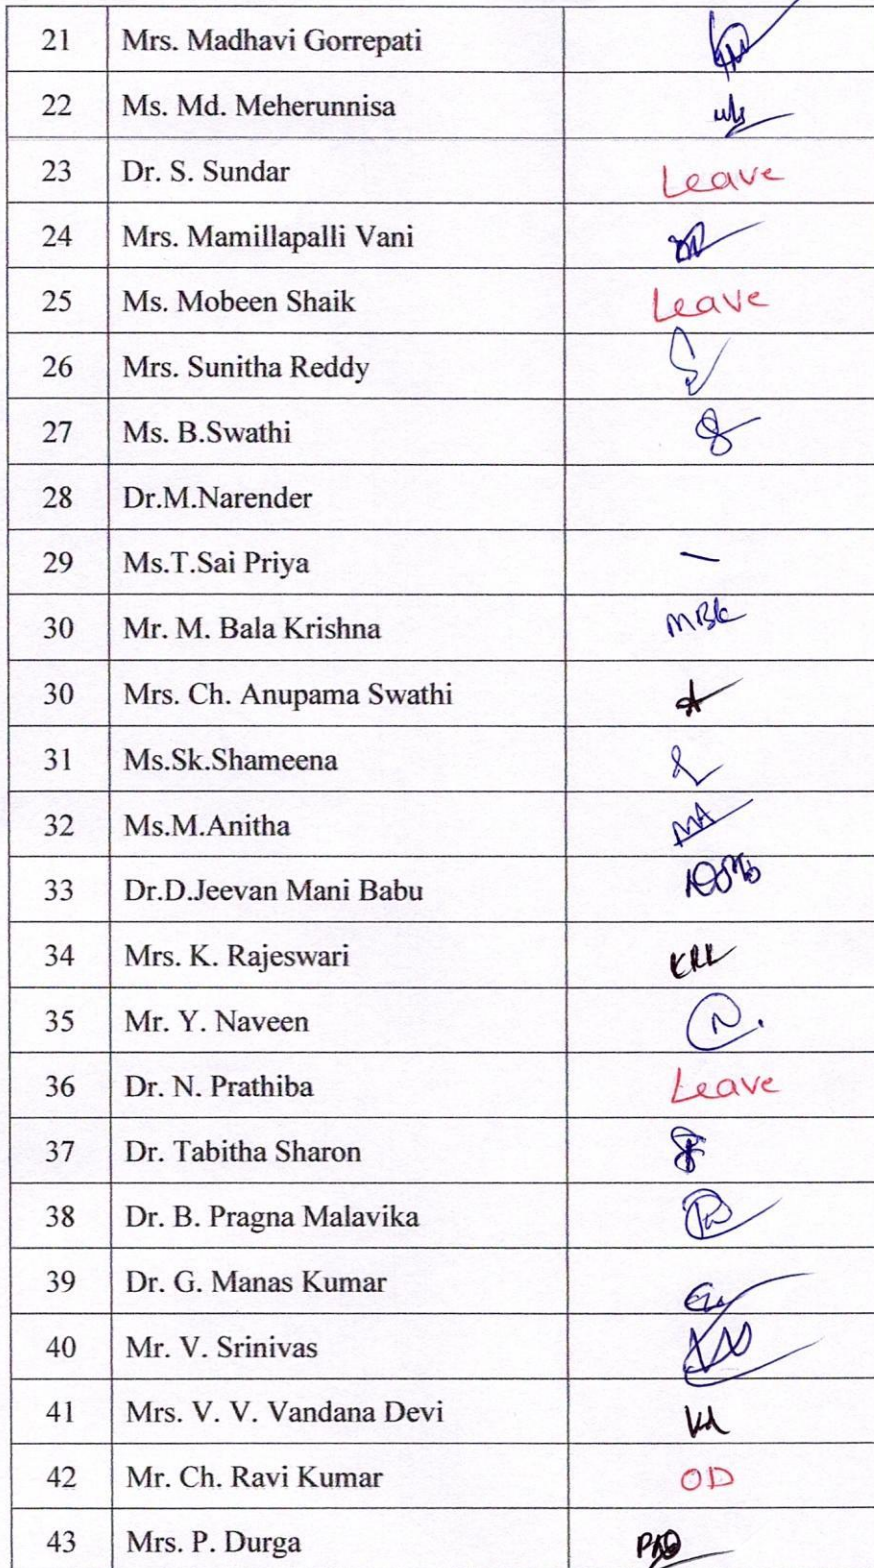 21 Mrs. Madhavi Gorrepati
22 Ms. Md. Meherunnisa
23 Dr. S. Sundar Leave
24 Mrs. Mamillapalli Vani
25 Ms. Mobeen Shaik Leave
26 Mrs. Sunitha Reddy
27 Ms. B.Swathi
28 Dr.M.Narender
29 Ms.T.Sai Priya —
30 Mr. M. Bala Krishna MBk
30 Mrs. Ch. Anupama Swathi
31 Ms.Sk.Shameena
32 Ms.M.Anitha MA
33 Dr.D.Jeevan Mani Babu
34 Mrs. K. Rajeswari
35 Mr. Y. Naveen N.
36 Dr. N. Prathiba Leave
37 Dr. Tabitha Sharon
38 Dr. B. Pragna Malavika
39 Dr. G. Manas Kumar
40 Mr. V. Srinivas
41 Mrs. V. V. Vandana Devi
42 Mr. Ch. Ravi Kumar OD
43 Mrs. P. Durga